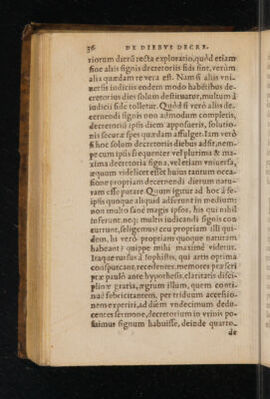 36 DE DIEBVS DECRE.
riorum dierũ recta exploratio, quòd etiam
sine alijs signis decretorijs fidi sint, verùm
alia quædam re vera est. Nam si alijs vni-
uersis iudicijs eodem modo habētibus de-
cretorius dies solum destituatur, multum à
iudicij fide tolletur. Quòd si verò alijs de-
cernendi signis non admodum completis,
decretorius ipsis diem apposueris, solutio-
nis securæ spes quædam affulget. Iam verò
si hoc solum decretorijs diebus adsit, nem-
pe cum ipsis siẽquenter vel plurima & ma-
xima decretoria signa, vel etiam vniuersa,
æquum videlicet esset huius tantum occa-
sione propriam decernendi dierum natu-
ram esse putare Quum igitur ad hoc à se-
ipsis quoque aliquid adferunt in medium:
non multo sanè magis ipsos, hi qui nihil
adferunt, neque multis iudicandi signis con
currunt, seligemus: ceu propriam illi qui-
dem, hi verò propriam quoque naturam
habeant: quippe mihi maximè videtur.
Itaque rursus à sophistis, qui artis optima
conspurcant, recedentes, memores præscri
ptæ paulò antè hypothesis, claritatis disci-
plinæ gratia, ægrum illum, quem conti-
nuâ febricitantem, per triduum accessio-
nem experiri, ad diem vndecimum dedu-
centes sermone, decretorium in vrinis po-
suimus signum habuisse, deinde quarto
de